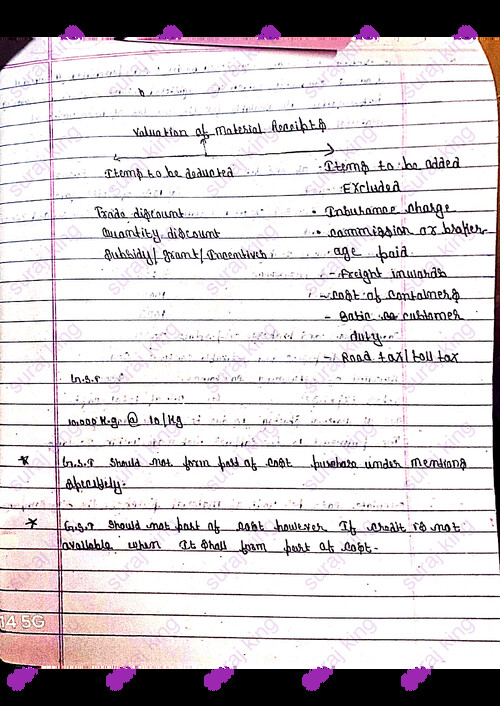 Valuation of Material Receipts
Items to be deducted
Items to be added
Excluded
Trade discount
• Insurance charge
Quantity discount
• commission or broker-
Subsidy/Grant/Incentives
age paid
- Freight inwards
- cost of containers
- Batic customer
duty
- Road tax/toll tax
G.S.T
10,000 K.g @ 10/Kg
* G.S.T should not form part of cost purchase under
* G.S.T should not part of cost however If credit is not
available when It shall form part of cost.
14 5G
suraj king